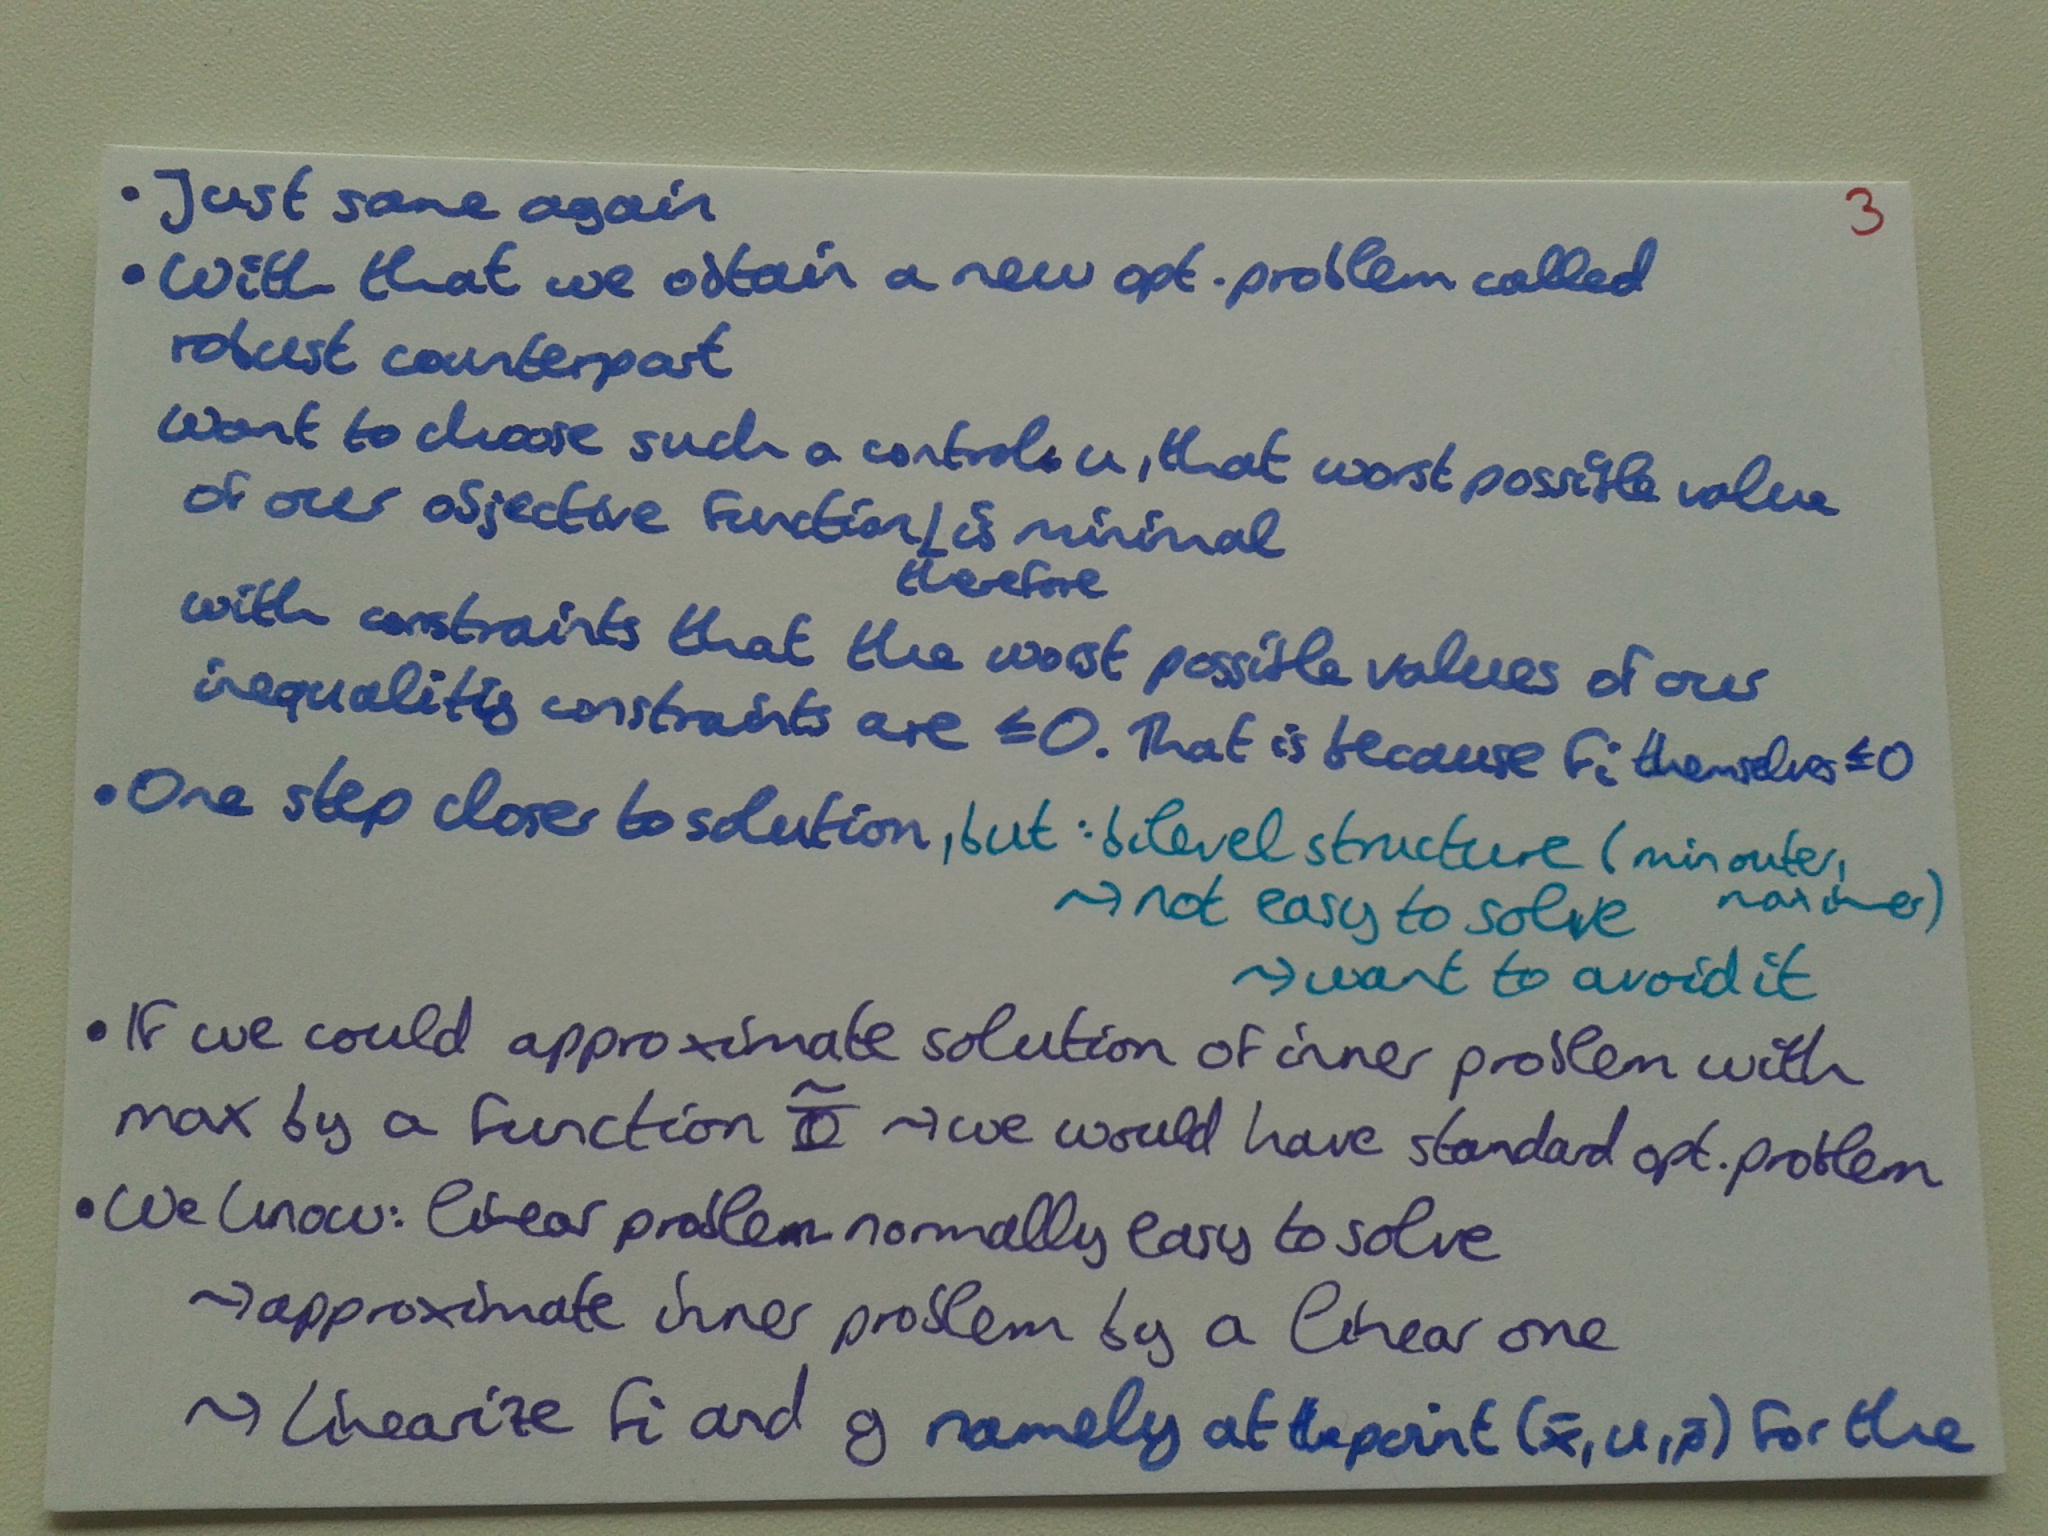 3
• Just same again
• With that we obtain a new opt. problem called
robust counterpart
Want to choose such a control u, that worst possible value
of our objective function is minimal
therefore
with constraints that the worst possible values of our
inequality constraints are ≤0. That is because Fi themselves ≤0
• One step closer to solution, but: bilevel structure (min outer,
max inner)
⤳ not easy to solve
⤳ want to avoid it
• If we could approximate solution of inner problem with
max by a function Φ̃ ⤳ we would have standard opt. problem
• We know: linear problem normally easy to solve
⤳ approximate inner problem by a linear one
⤳ Linearize Fi and g namely at the point (x̄, u, p̄) for the